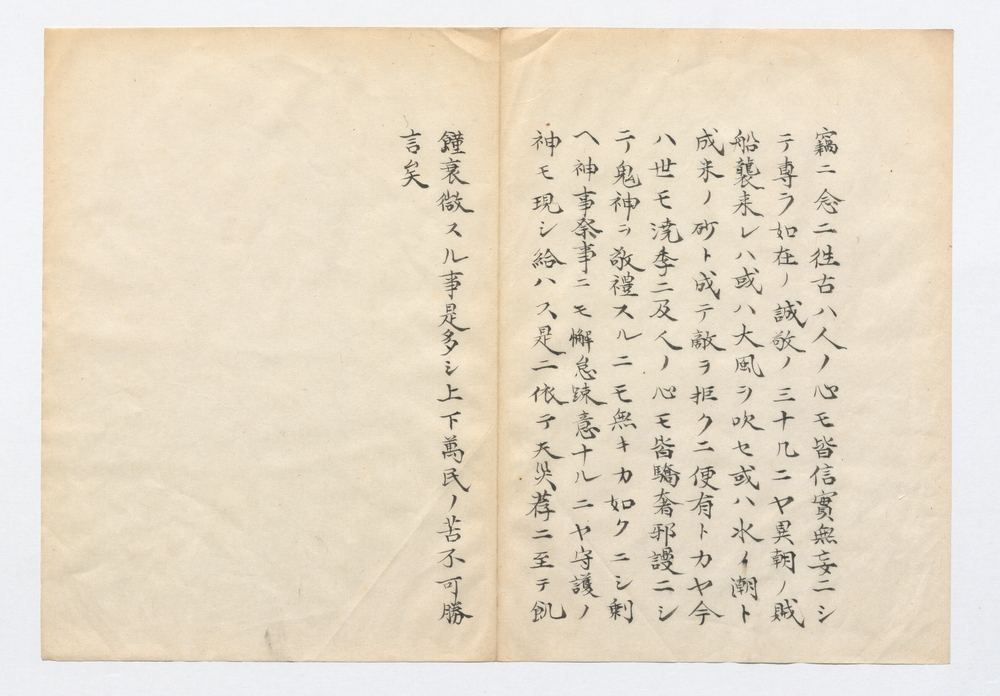 竊ニ念ニ徃古ハ人ノ心モ皆信實無妄ニシ
テ專ラ如在ノ誠敬ノミナルニヤ異朝ノ賊
船襲来レハ或ハ大風ヲ吹セ或ハ水ノ潮ト
成米ノ砂ト成テ敵ヲ拒クニ便有トカヤ今
ハ世モ澆季ニ及人ノ心モ皆驕奢邪謾ニシ
テ鬼神ヲ敬禮スルニモ無キカ如クニシ剰
ヘ神事祭事ニモ懈怠踈意ナルニヤ守護ノ
神モ現シ給ハス是ニ依テ天災荐ニ至テ飢
饉衰微スル事是多シ上下萬民ノ苦不可勝
言矣